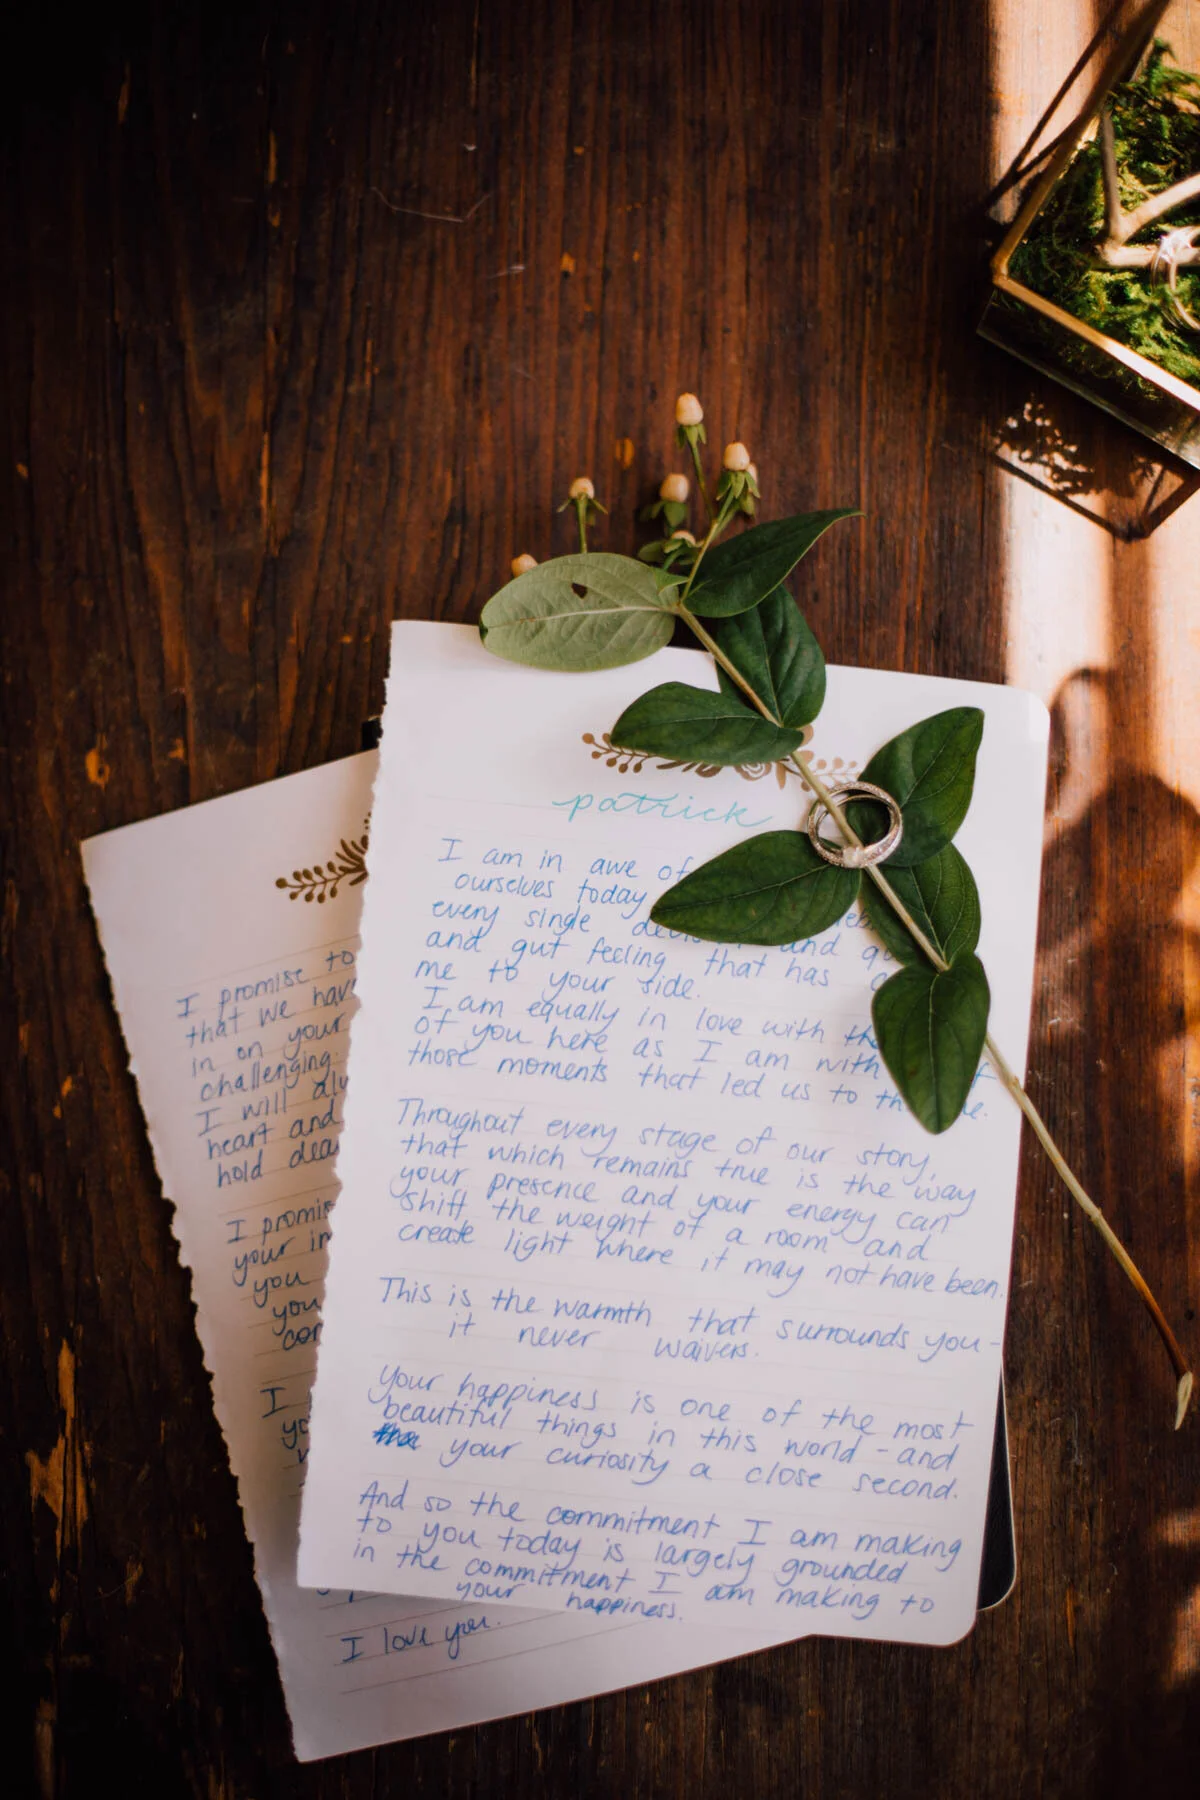 patrick
I am in awe of
ourselves today
every single and
and gut feeling that has
me to your side.
I am equally in love with
of you here as I am with
those moments that led us to
Throughout every stage of our story,
that which remains true is the way
your presence and your energy can
shift the weight of a room and
create light where it may not have been.
This is the warmth that surrounds you -
it never waivers.
Your happiness is one of the most
beautiful things in this world - and
your curiosity a close second.
And so the commitment I am making
to you today is largely grounded
in the commitment I am making to
your happiness.
I promise to
that we hav
in on your
challenging.
I will
heart and
hold
I promis
your
you
you
I
I love you.